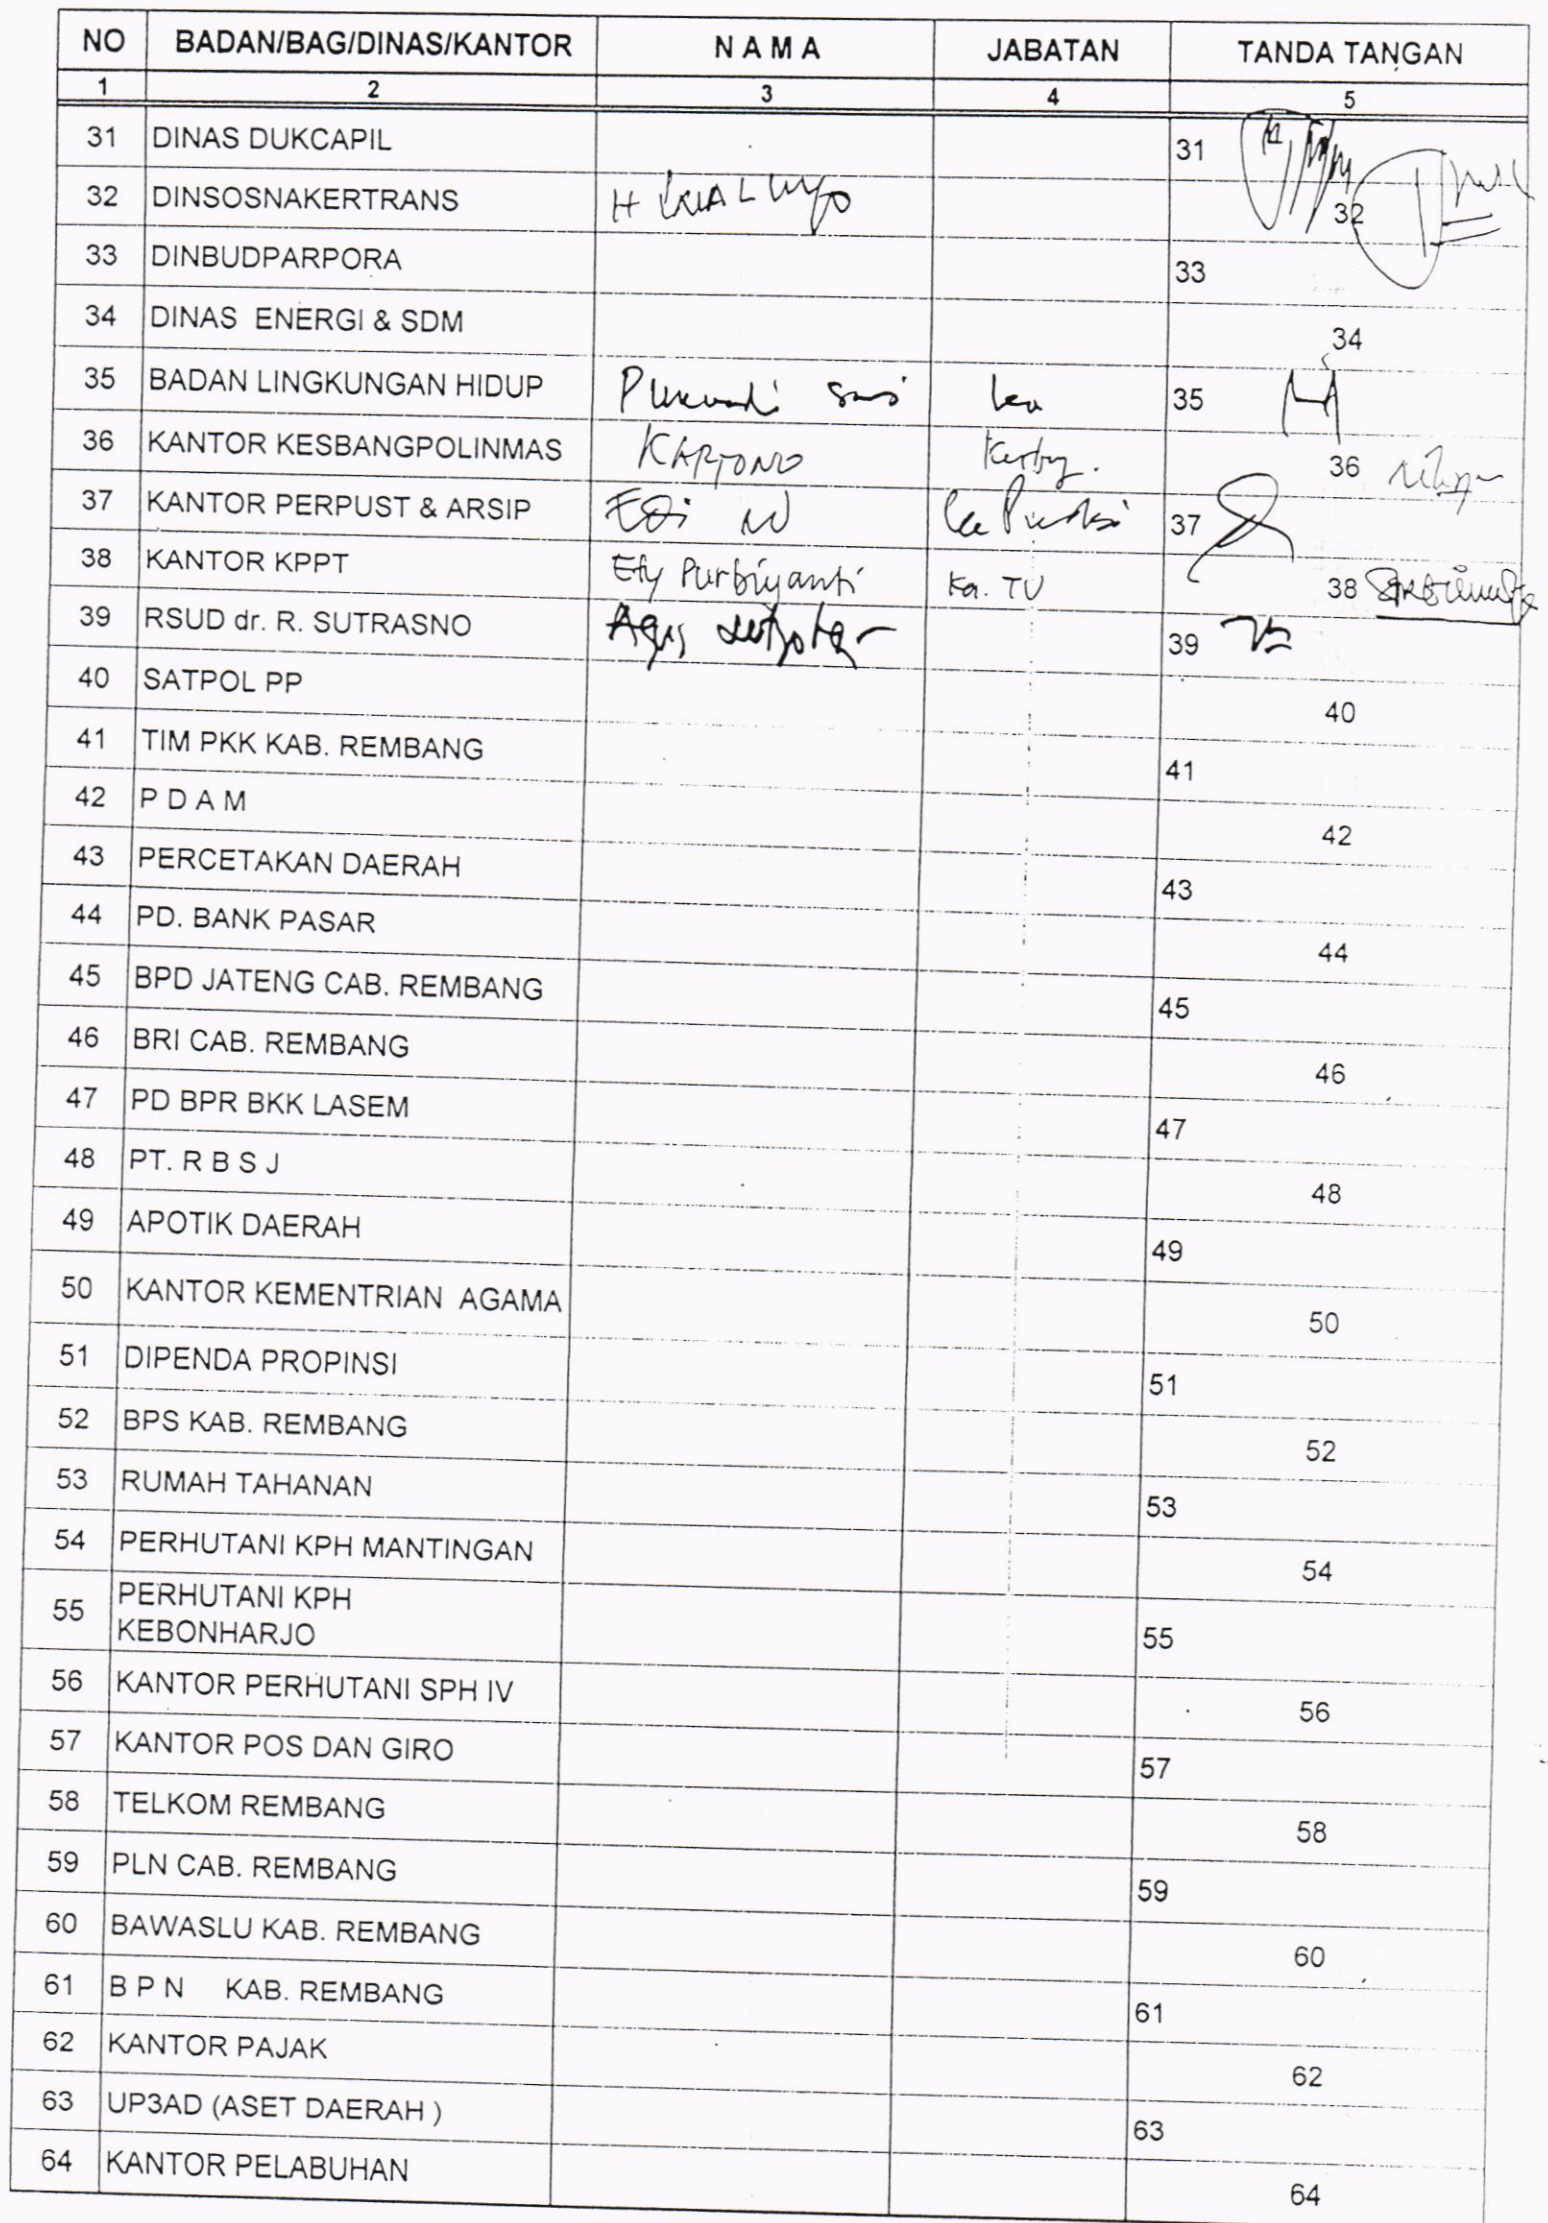 NO BADAN/BAG/DINAS/KANTOR N A M A JABATAN TANDA TANGAN
1 2 3 4 5
31 DINAS DUKCAPIL 31
32 DINSOSNAKERTRANS H 32
33 DINBUDPARPORA 33
34 DINAS ENERGI & SDM 34
35 BADAN LINGKUNGAN HIDUP 35
36 KANTOR KESBANGPOLINMAS KARTONO 36
37 KANTOR PERPUST & ARSIP EDi 37
38 KANTOR KPPT Ety Purbiyanti Ka. TU 38
39 RSUD dr. R. SUTRASNO Agus 39
40 SATPOL PP 40
41 TIM PKK KAB. REMBANG 41
42 P D A M 42
43 PERCETAKAN DAERAH 43
44 PD. BANK PASAR 44
45 BPD JATENG CAB. REMBANG 45
46 BRI CAB. REMBANG 46
47 PD BPR BKK LASEM 47
48 PT. R B S J 48
49 APOTIK DAERAH 49
50 KANTOR KEMENTRIAN AGAMA 50
51 DIPENDA PROPINSI 51
52 BPS KAB. REMBANG 52
53 RUMAH TAHANAN 53
54 PERHUTANI KPH MANTINGAN 54
55 PERHUTANI KPH
KEBONHARJO 55
56 KANTOR PERHUTANI SPH IV 56
57 KANTOR POS DAN GIRO 57
58 TELKOM REMBANG 58
59 PLN CAB. REMBANG 59
60 BAWASLU KAB. REMBANG 60
61 B P N KAB. REMBANG 61
62 KANTOR PAJAK 62
63 UP3AD (ASET DAERAH ) 63
64 KANTOR PELABUHAN 64